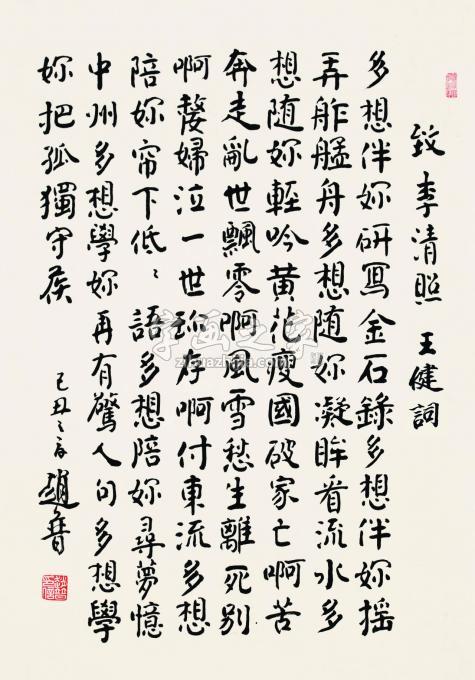 致李清照 王健詞
多想伴妳研寫金石錄多想伴妳摇
弄舴艋舟多想随妳凝眸看流水多
想随妳輕吟黄花瘦國破家亡啊苦
奔走亂世飄零啊風雪愁生離死别
啊嫠婦泣一世珍存啊付東流多想
陪妳帘下低〻語多想陪妳尋夢憶
中州多想學妳再有驚人句多想學
妳把孤獨守候
己丑 趙普
字画之家